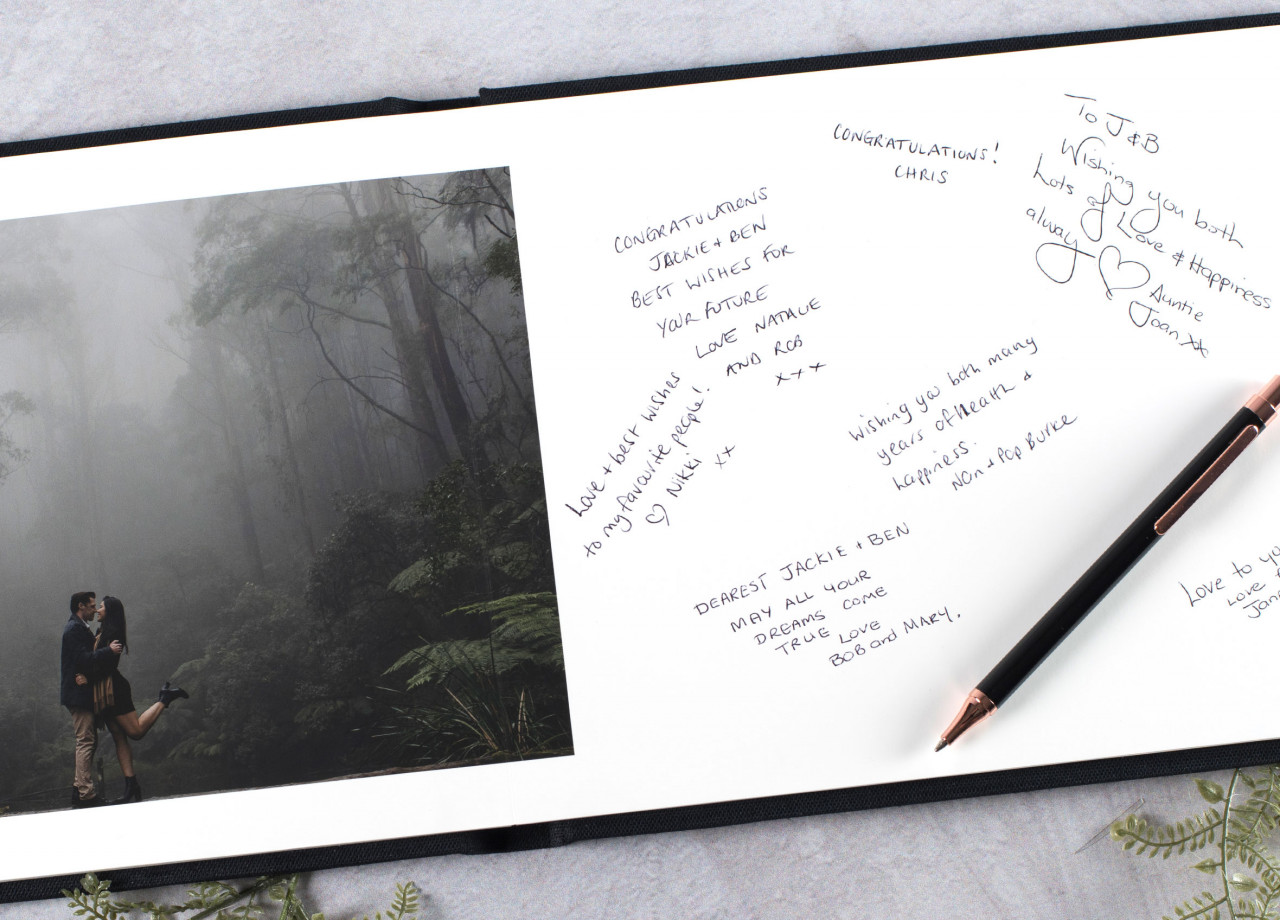 CONGRATULATIONS!
CHRIS
To J & B
Wishing you both
Lots of Love & Happiness
alway
Auntie
Joan xx
CONGRATULATIONS
JACKIE + BEN
BEST WISHES FOR
YOUR FUTURE
LOVE NATALIE
AND ROB
x x x
Love + best wishes
to my favourite people!
♡ Nikki xx
wishing you both many
years of health &
happiness.
Nan + Pop Burke
DEAREST JACKIE + BEN
MAY ALL YOUR
DREAMS COME
TRUE LOVE
BOB and MARY.
Love to
Love